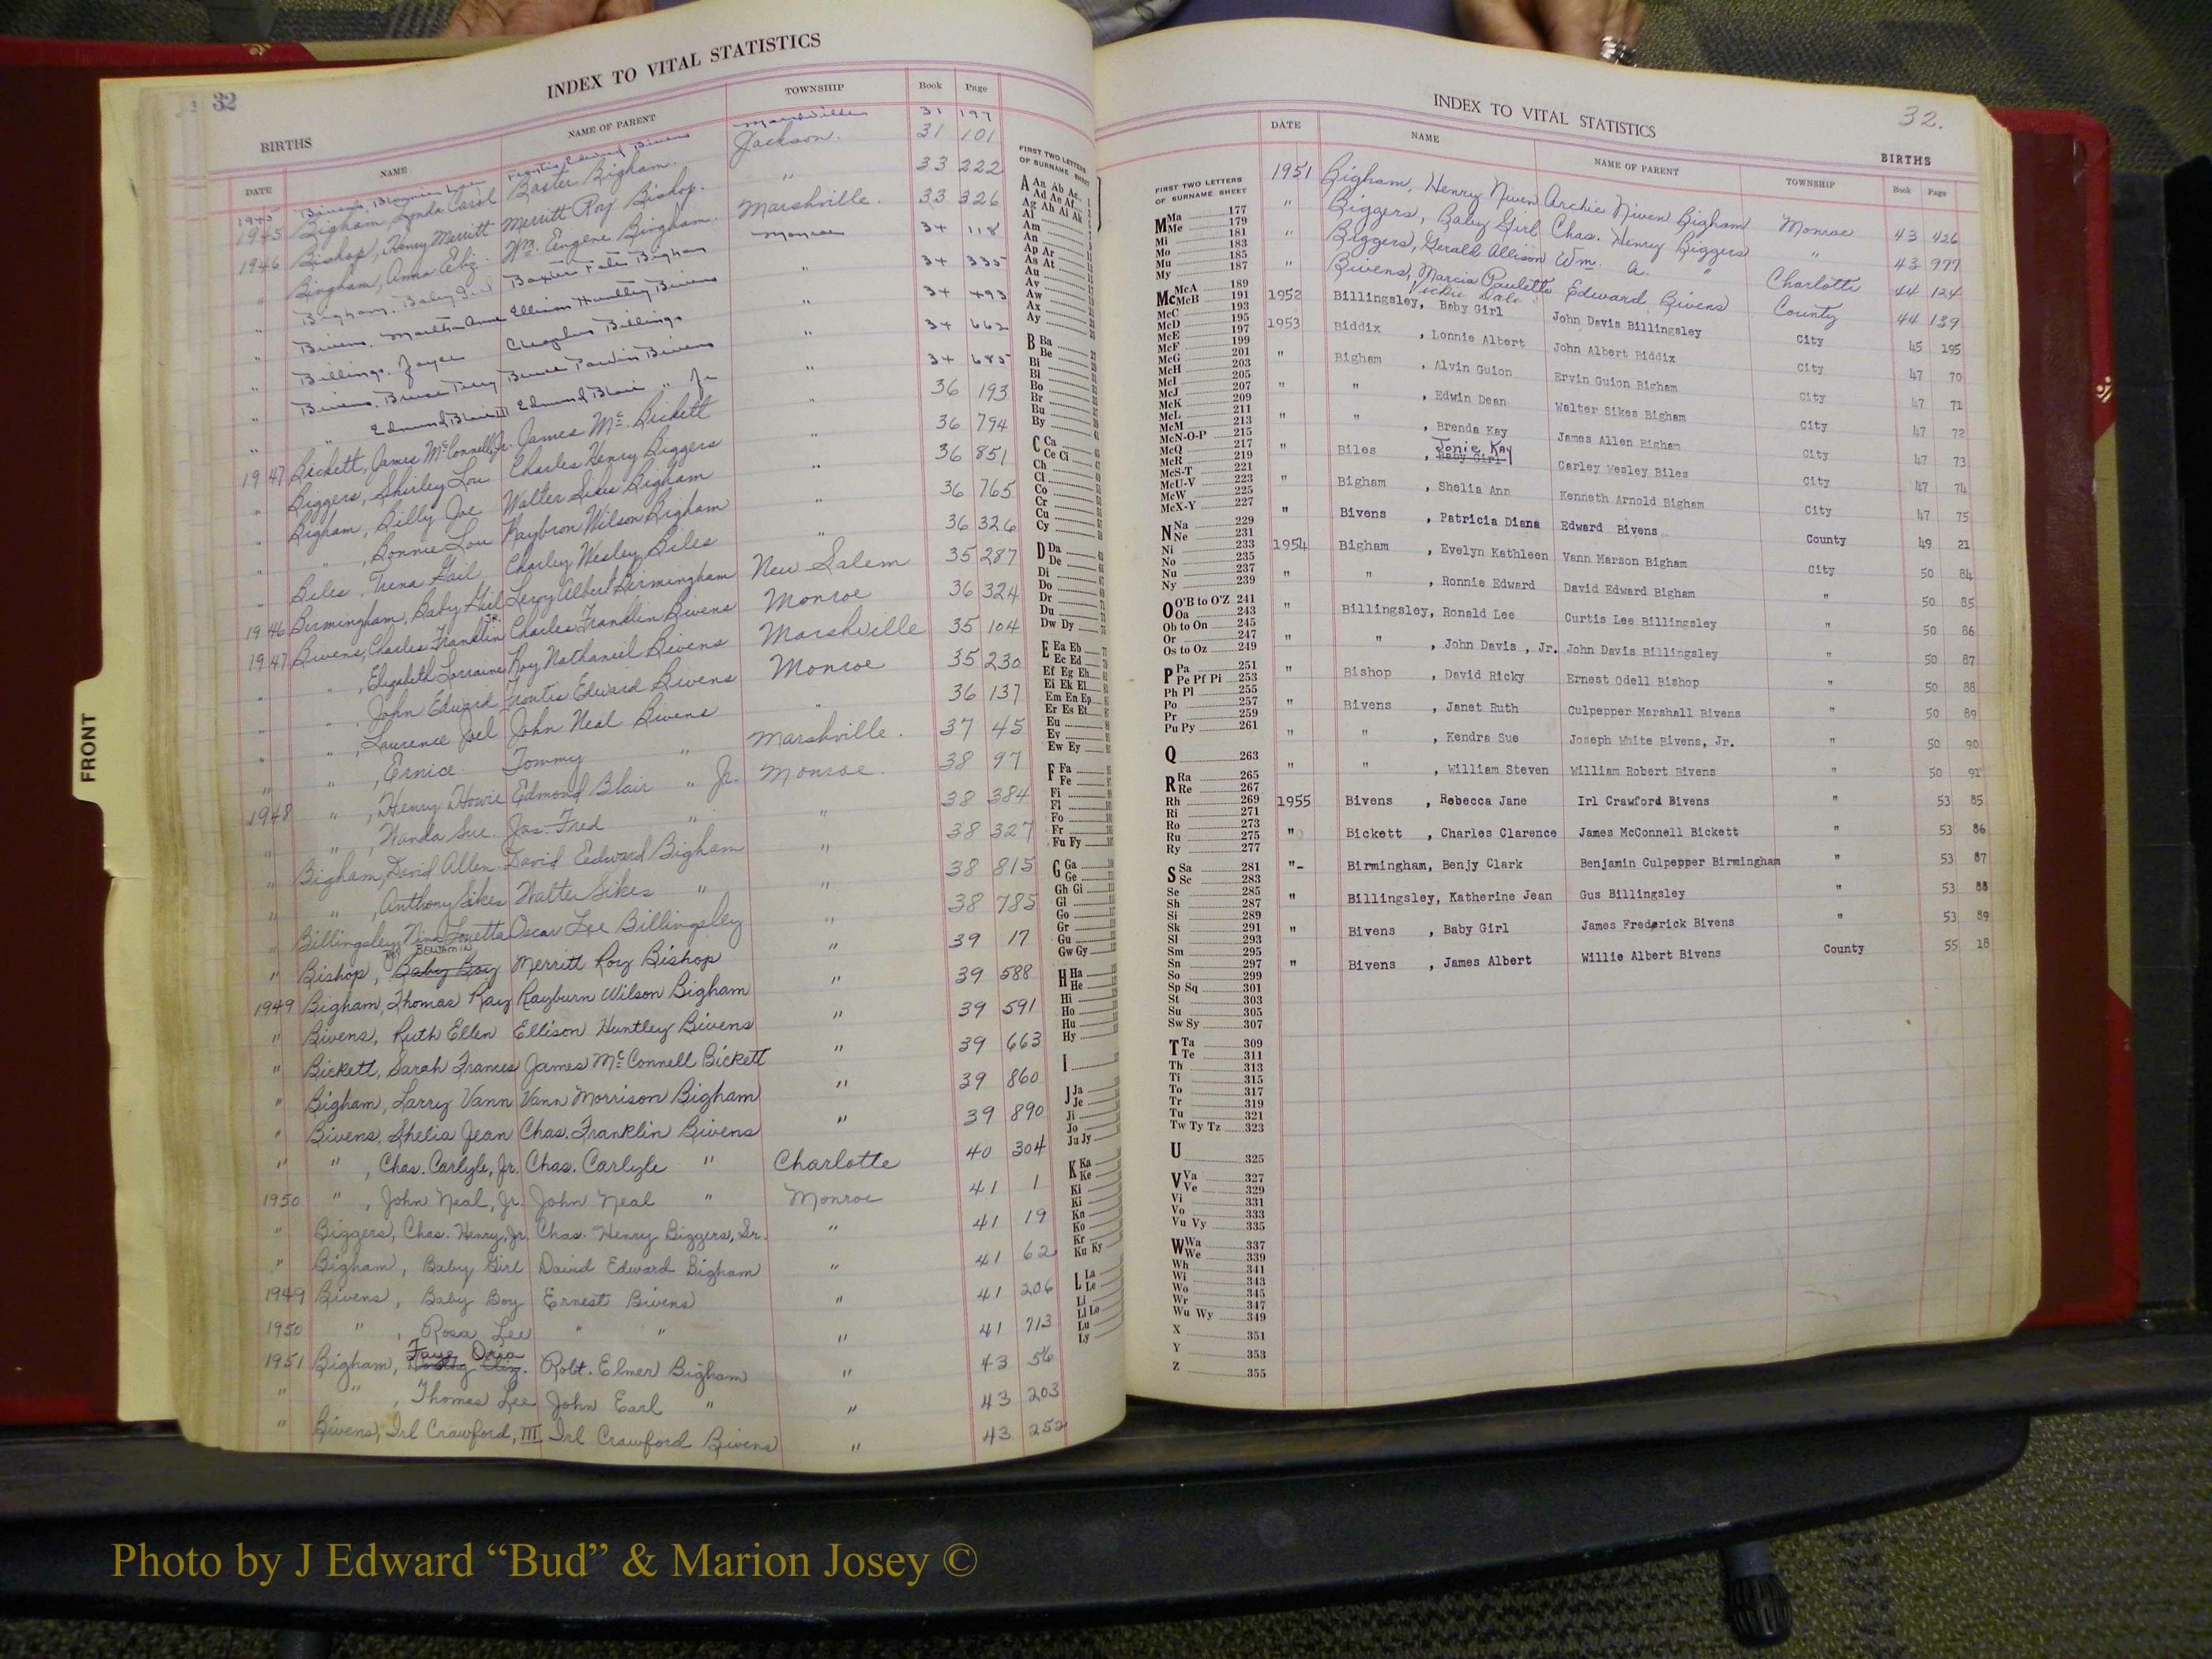 32
INDEX TO VITAL STATISTICS
BIRTHS
DATE NAME NAME OF PARENT TOWNSHIP Book Page
1945 Bivens, Frontis Edward Bivens Marshville 31 197
1945 Bigham, Linda Carol Baxter Bigham. Jackson. 31 101
1946 Bishop, Henry Merritt Merritt Roy Bishop. " 33 222
" Bingham, Anna Eliz. Wm. Eugene Bingham. Marshville. 33 326
" Bigham, Baby Girl Baxter Bigham Monroe 34 118
" Bivens, Martha Anne Ellison Huntley Bivens " 34 335
" Billings, Joyce Cleophus Billings " 34 493
" Bivens, Bruce Terry Bruce Bivens " 34 662
" " Edmund Blair III Edmund Blair " Jr " 34 685
1947 Bickett, James McConnell, Jr. James Mc. Bickett " 36 193
" Biggers, Shirley Lou Charles Henry Biggers " 36 794
" Bigham, Billy Joe Walter Sikes Bigham " 36 851
" " , Bonnie Lou Raybron Wilson Bigham " 36 765
" Biles, Trena Gail Charley Wesley Biles " 36 326
1946 Birmingham, Baby Girl Leroy Albert Birmingham New Salem 35 287
1947 Bivens, Charles Franklin Jr. Charles Franklin Bivens Monroe 36 324
" " , Elizabeth Lorraine Roy Nathaniel Bivens Marshville 35 104
" " , John Edward Frontis Edward Bivens Monroe 35 230
" " , Laurence Joel John Neal Bivens " 36 137
" " , Ernice. Tommy " Marshville. 37 45
1948 " , Henry Howie Edmond Blair " Jr. Monroe. 38 97
" " , Wanda Sue. Jas. Fred " " 38 384
" Bigham, David Allen. David Eedward Bigham " 38 327
" " , Anthony Sikes Walter Sikes " " 38 815
" Billingsley, Nina Louetta Oscar Lee Billingsley " 38 785
" Bishop, Baby Boy Merritt Roy Bishop " 39 17
1949 Bigham, Thomas Ray Rayburn Wilson Bigham " 39 588
" Bivens, Ruth Ellen Ellison Huntley Bivens " 39 591
" Bickett, Sarah Frances James McConnell Bickett " 39 663
" Bigham, Larry Vann Vann Morrison Bigham " 39 860
" Bivens, Shelia Jean Chas. Franklin Bivens " 39 890
" " , Chas. Carlyle, Jr. Chas. Carlyle " Charlotte 40 304
1950 " , John Neal, Jr. John Neal " Monroe 41 1
" Biggers, Chas. Henry, Jr. Chas. Henry Biggers, Sr. " 41 19
" Bigham, Baby Girl David Edward Bigham " 41 62
1949 Bivens, Baby Boy Ernest Bivens " 41 206
1950 " , Rosa Lee " " " 41 713
1951 Bigham, Faye Oria Robt. Elmer Bigham " 43 56
" " , Thomas Lee John Earl " " 43 203
" Bivens, Irl Crawford, III Irl Crawford Bivens " 43 252
FIRST TWO LETTERS
OF SURNAME SHEET
A Aa Ab Ac
Ad Ae Af
Ag Ah Ai Ak
Al
Am
An
Ap Ar
As At
Au
Av
Aw
Ax
Ay
B Ba
Be
Bi
Bl
Bo
Br
Bu
By
C Ca
Ce Ci
Ch
Cl
Co
Cr
Cu
Cy
D Da
De
Di
Do
Dr
Du
Dw Dy
E Ea Eb
Ec Ed
Ef Eg Eh
Ei Ek El
Em En Ep
Er Es Et
Eu
Ev
Ew Ey
F Fa
Fe
Fi
Fl
Fo
Fr
Fu Fy
G Ga
Ge
Gh Gi
Gl
Go
Gr
Gu
Gw Gy
H Ha
He
Hi
Ho
Hu
Hy
I
J Ja
Je
Ji
Jo
Ju Jy
K Ka
Ke
Ki
Kn
Ko
Kr
Ku Ky
L La
Le
Li
Ll Lo
Lu
Ly
FRONT
INDEX TO VITAL STATISTICS
32.
BIRTHS
DATE NAME NAME OF PARENT TOWNSHIP Book Page
1951 Bigham, Henry Niven Archie Niven Bigham Monroe 43 426
" Biggers, Baby Girl Chas. Henry Biggers " 43 977
" Biggers, Gerald Allison Wm. A. " Charlotte 44 124
" Bivens, Marcia Paulette Edward Bivens County 44 139
Vickie Dale
1952 Billingsley, Baby Girl John Davis Billingsley City 45 195
1953 Biddix , Lonnie Albert John Albert Biddix City 47 70
" Bigham , Alvin Guion Ervin Guion Bigham City 47 71
" " , Edwin Dean Walter Sikes Bigham City 47 72
" " , Brenda Kay James Allen Bigham City 47 73
" Biles , Baby Girl Jonie Kay Carley Wesley Biles City 47 74
" Bigham , Shelia Ann Kenneth Arnold Bigham City 47 75
" Bivens , Patricia Diana Edward Bivens County 49 21
1954 Bigham , Evelyn Kathleen Vann Marson Bigham City 50 84
" " , Ronnie Edward David Edward Bigham " 50 85
" Billingsley, Ronald Lee Curtis Lee Billingsley " 50 86
" " , John Davis , Jr. John Davis Billingsley " 50 87
" Bishop , David Ricky Ernest Odell Bishop " 50 88
" Bivens , Janet Ruth Culpepper Marshall Bivens " 50 89
" " , Kendra Sue Joseph White Bivens, Jr. " 50 90
" " , William Steven William Robert Bivens " 50 91
1955 Bivens , Rebecca Jane Irl Crawford Bivens " 53 85
" Bickett , Charles Clarence James McConnell Bickett " 53 86
"- Birmingham, Benjy Clark Benjamin Culpepper Birmingham " 53 87
" Billingsley, Katherine Jean Gus Billingsley " 53 88
" Bivens , Baby Girl James Frederick Bivens " 53 89
" Bivens , James Albert Willie Albert Bivens County 55 18
FIRST TWO LETTERS
OF SURNAME SHEET
M Ma 177
Me 179
Mi 181
Mo 183
Mu 185
My 187
Mc McA 189
McB 191
McC 193
McD 195
McE 197
McF 199
McG 201
McH 203
McI 205
McJ 207
McK 209
McL 211
McM 213
McN-O-P 215
McQ 217
McR 219
McS-T 221
McU-V 223
McW 225
McX-Y 227
N Na 229
Ne 231
Ni 233
No 235
Nu 237
Ny 239
O O'B to O'Z 241
Oa 243
Ob to On 245
Or 247
Os to Oz 249
P Pa 251
Pe Pf Pi 253
Ph Pl 255
Po 257
Pr 259
Pu Py 261
Q 263
R Ra 265
Re 267
Rh 269
Ri 271
Ro 273
Ru 275
Ry 277
S Sa 281
Sc 283
Se 285
Sh 287
Si 289
Sk 291
Sl 293
Sm 295
Sn 297
So 299
Sp Sq 301
St 303
Su 305
Sw Sy 307
T Ta 309
Te 311
Th 313
Ti 315
To 317
Tr 319
Tu 321
Tw Ty Tz 323
U 325
V Va 327
Ve 329
Vi 331
Vo 333
Vu Vy 335
W Wa 337
We 339
Wh 341
Wi 343
Wo 345
Wr 347
Wu Wy 349
X 351
Y 353
Z 355
Photo by J Edward “Bud” & Marion Josey ©